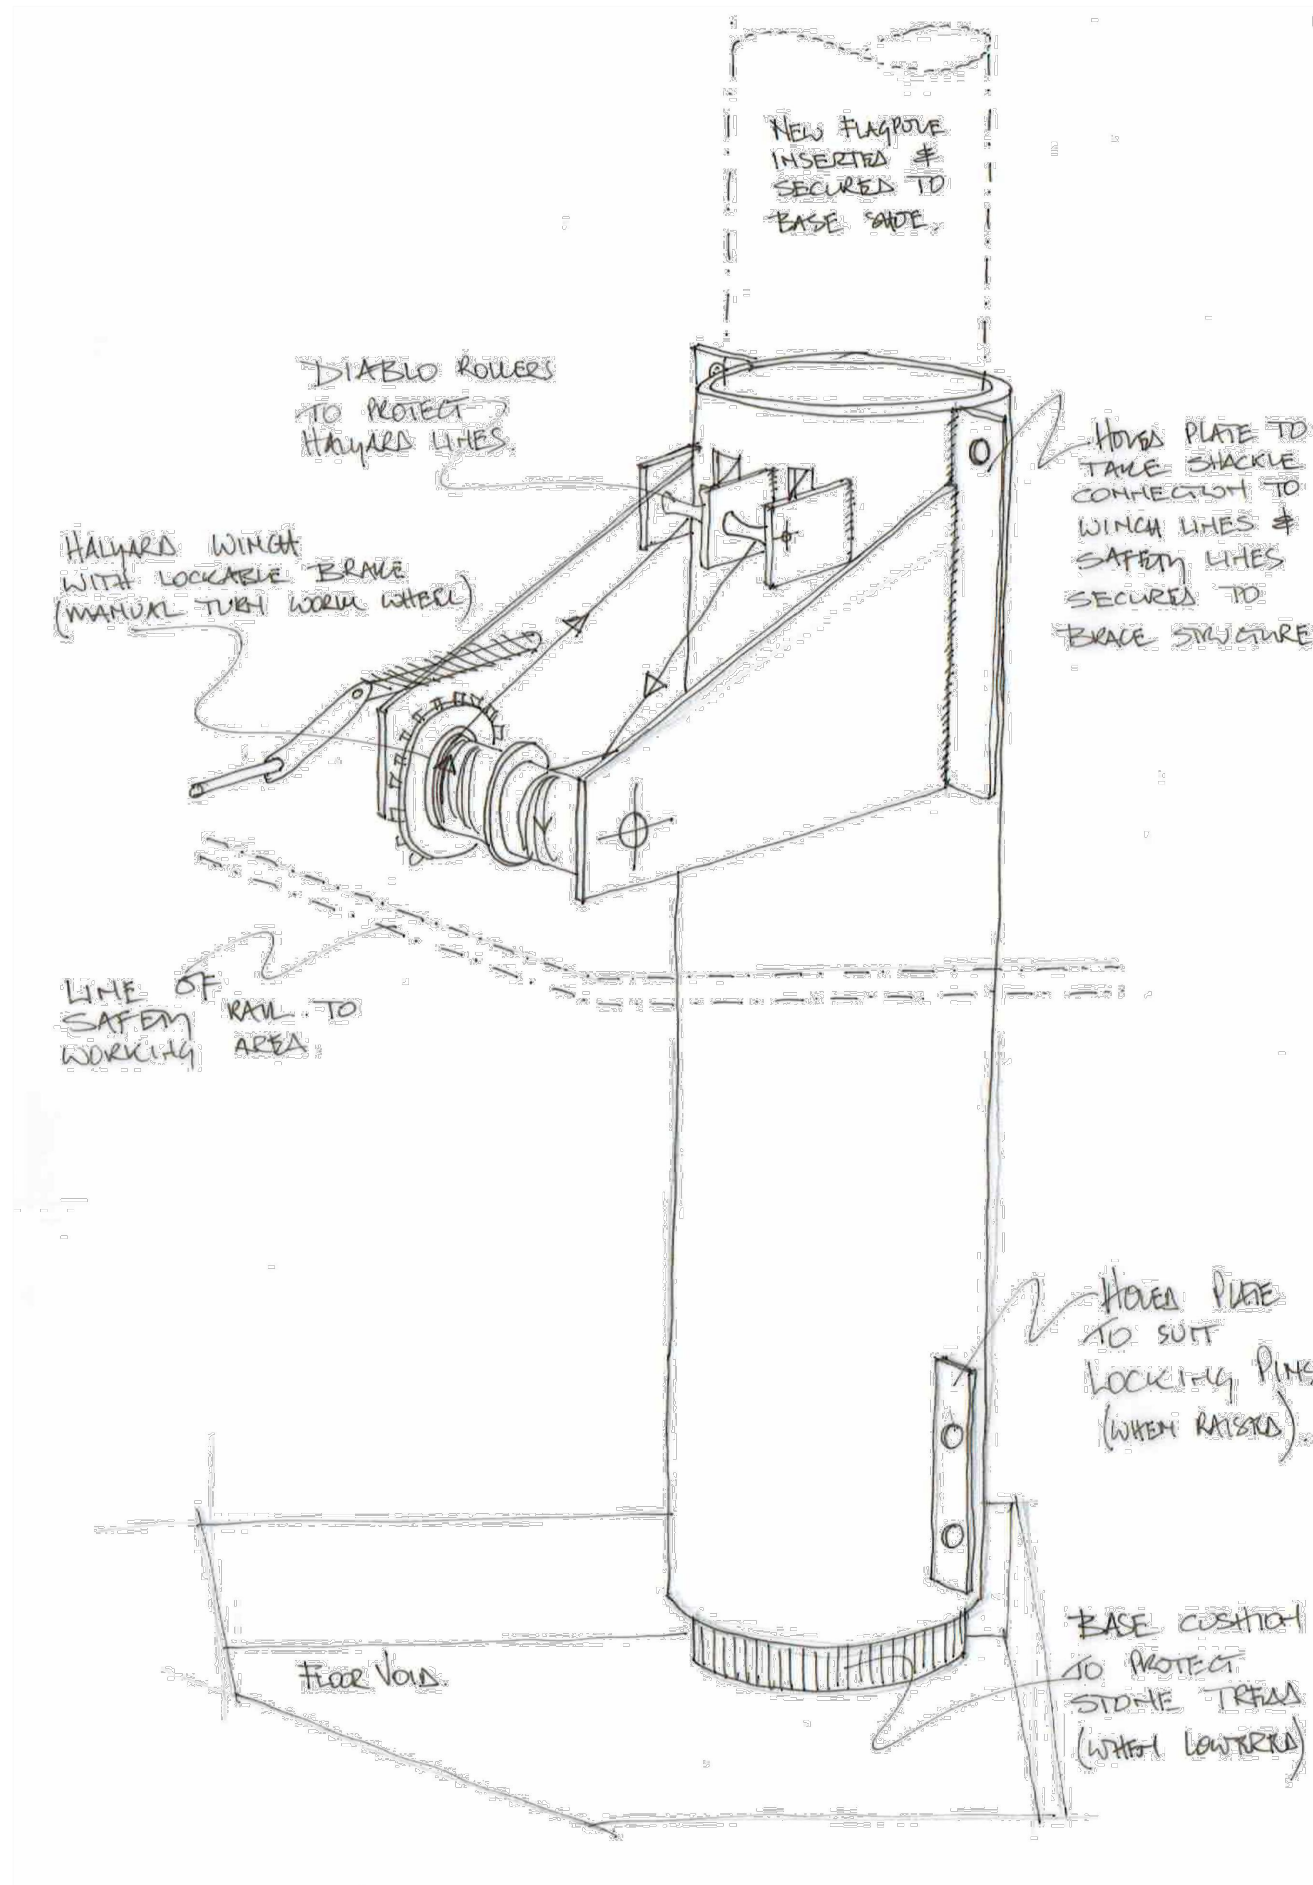 NEW FLAGPOLE
INSERTED &
SECURED TO
BASE SHOE.
DIABLO ROLLERS
TO PROTECT
HALYARD LINES.
HOLED PLATE TO
TAKE SHACKLE
CONNECTION TO
WINCH LINES &
SAFETY LINES
SECURED TO
BRACE STRUCTURE
HALYARD WINCH
WITH LOCKABLE BRAKE
(MANUAL TURN WORM WHEEL)
LINE OF
SAFETY RAIL TO
WORKING AREA
HOLED PLATE
TO SUIT
LOCKING PINS
(WHEN RAISED).
FLOOR VOID.
BASE CUSHION
TO PROTECT
STONE TREAD
(WHEN LOWERED)